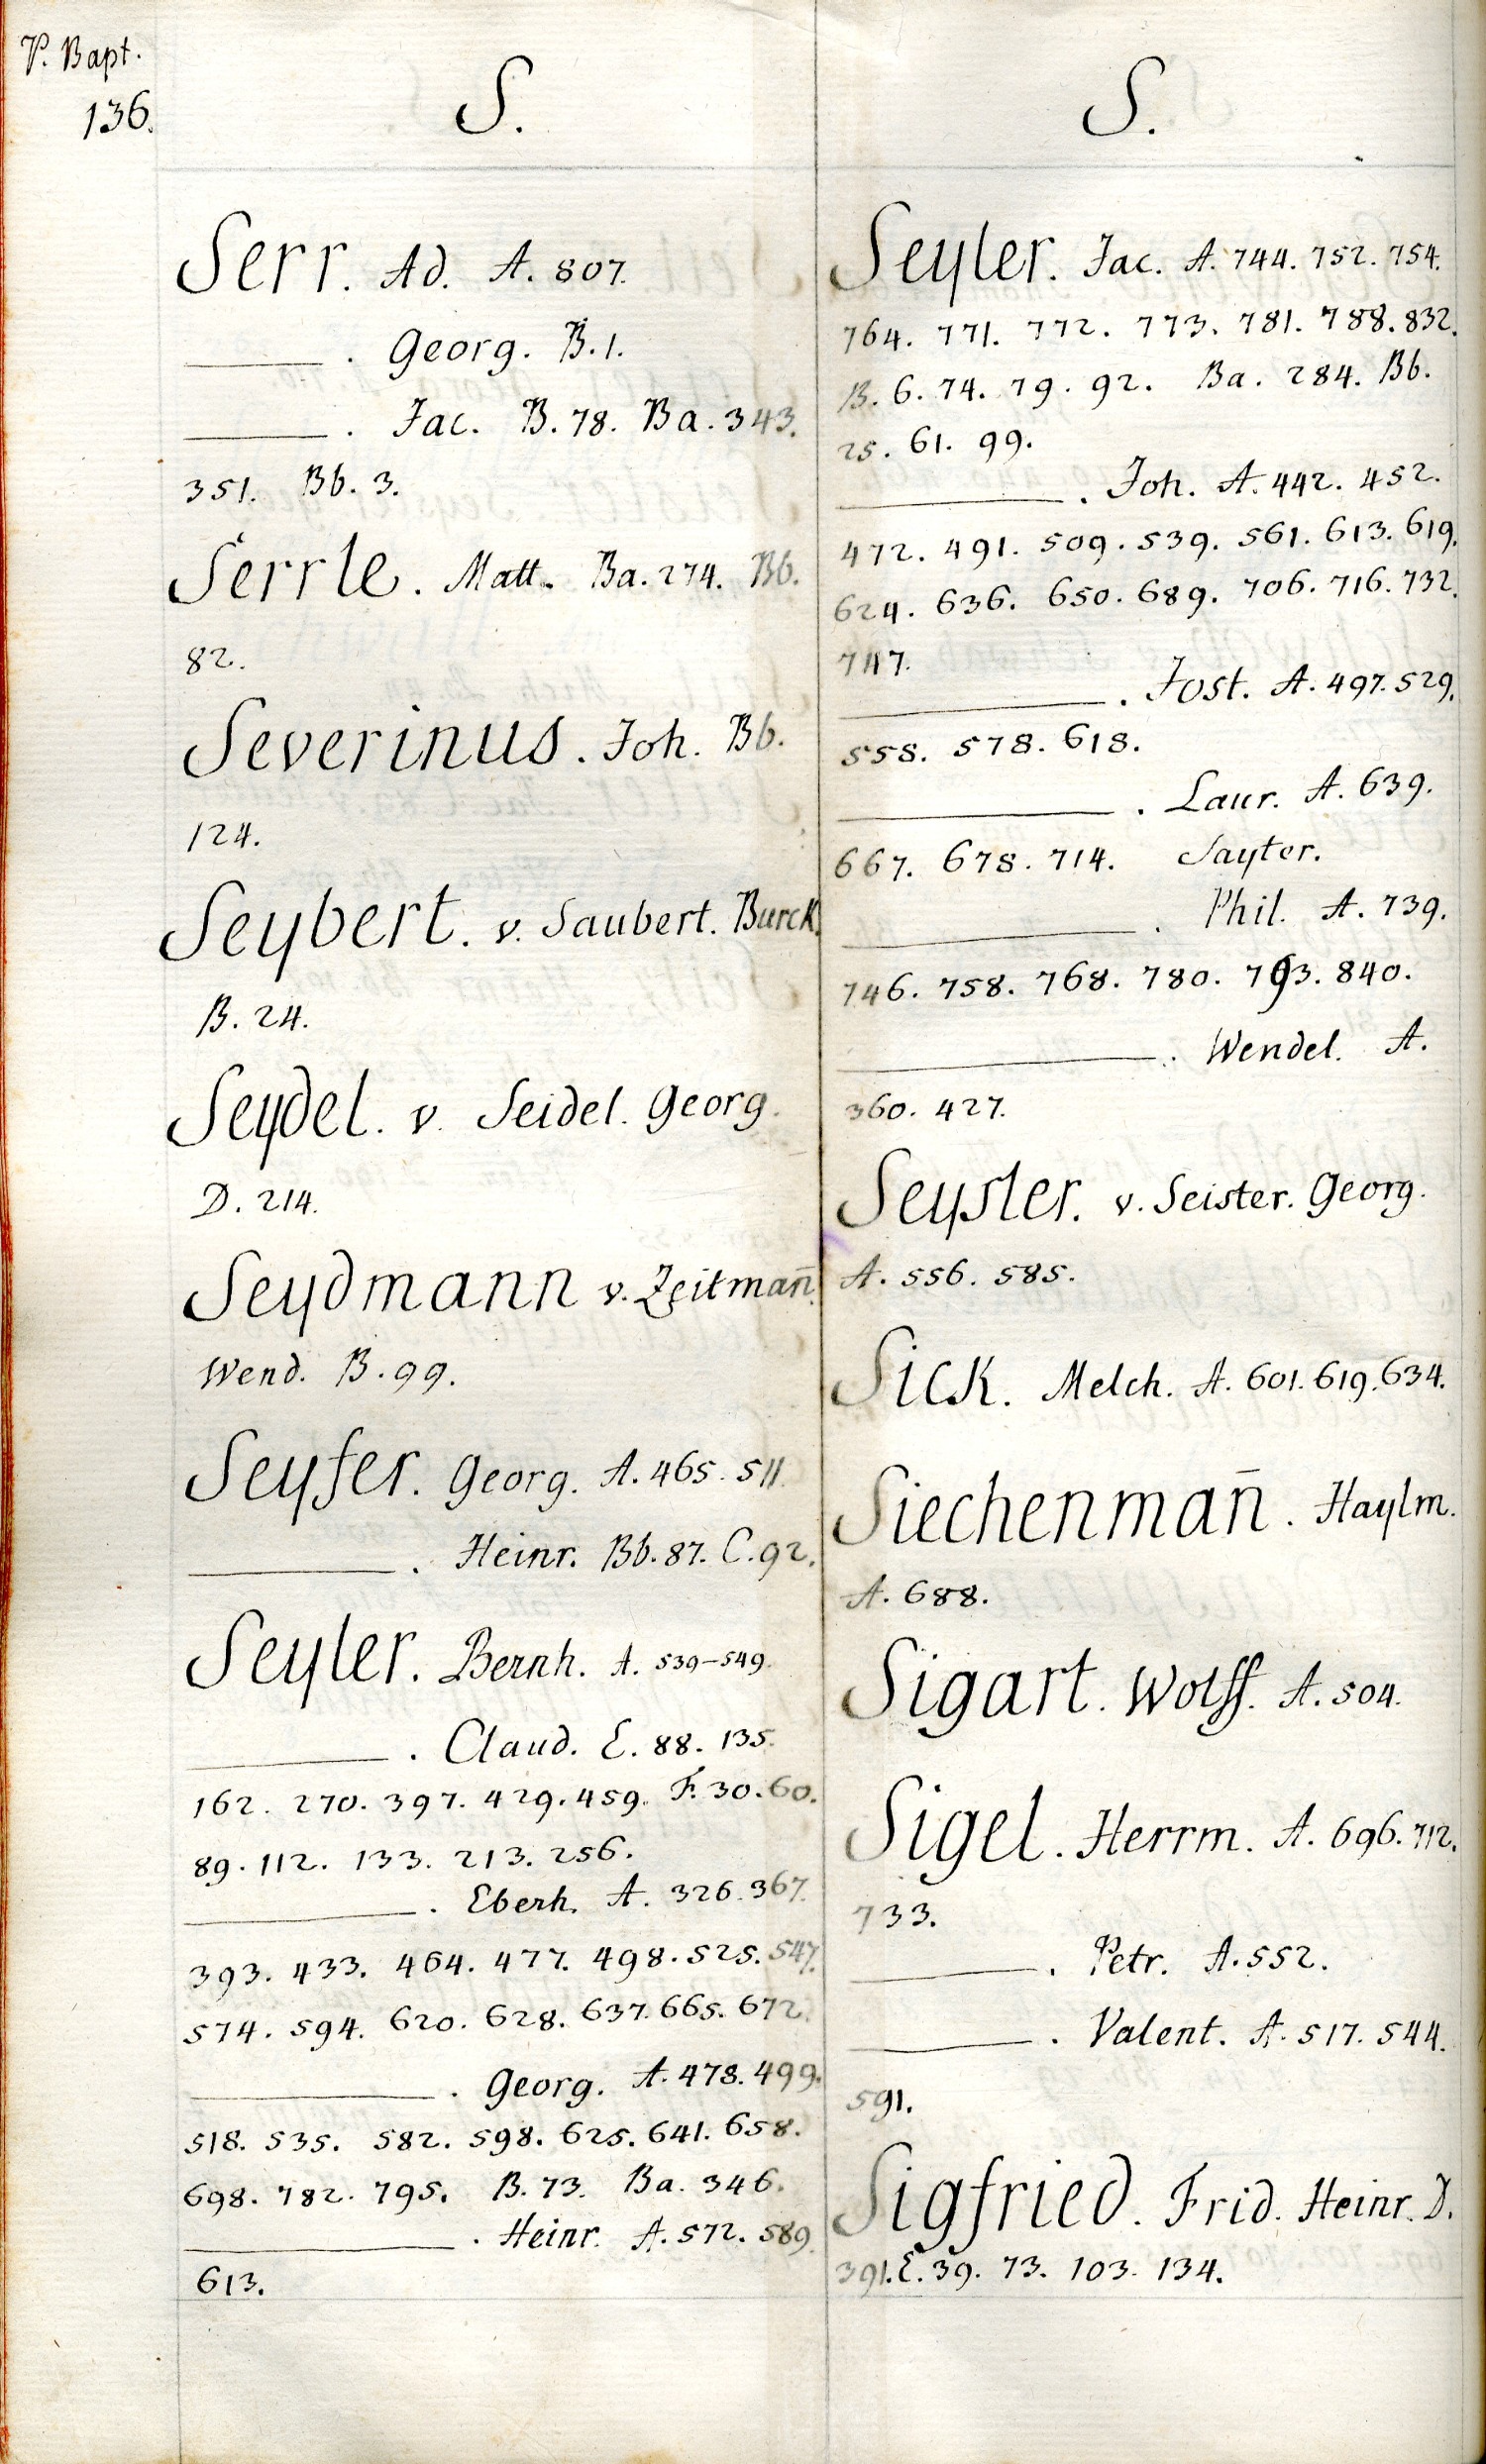 P. Bapt.
136.
S.
Serr. Ad. A. 807.
——. Georg. B. 1.
——. Jac. B. 78. Ba. 343.
351. Bb. 3.
Serrle. Matt. Ba. 274. Bb.
82.
Severinus. Joh. Bb.
124.
Seybert. v. Saubert. Burck.
B. 24.
Seydel. v. Seidel. Georg.
D. 214.
Seydmann v. Zeitman̄.
Wend. B. 99.
Seyfer. Georg. A. 465. 511.
——. Heinr. Bb. 87. C. 92.
Seyler. Bernh. A. 539–549.
——. Claud. E. 88. 135.
162. 270. 397. 429. 459. F. 30. 60.
89. 112. 133. 213. 256.
——. Eberh. A. 326. 367.
393. 433. 464. 477. 498. 525. 547.
574. 594. 620. 628. 637. 665. 672.
——. Georg. A. 478. 499.
518. 535. 582. 598. 625. 641. 658.
698. 782. 795. B. 73. Ba. 346.
——. Heinr. A. 572. 589.
613.
S.
Seyler. Jac. A. 744. 752. 754.
764. 771. 772. 773. 781. 788. 832.
B. 6. 74. 79. 92. Ba. 284. Bb.
25. 61. 99.
——. Joh. A. 442. 452.
472. 491. 509. 539. 561. 613. 619.
624. 636. 650. 689. 706. 716. 732.
747.
——. Jost. A. 497. 529.
558. 578. 618.
——. Laur. A. 639.
667. 678. 714. Sayler.
——. Phil. A. 739.
746. 758. 768. 780. 793. 840.
——. Wendel. A.
360. 427.
Seysler. v. Seister. Georg.
A. 556. 585.
Sick. Melch. A. 601. 619. 634.
Siechenman̄. Haylm.
A. 688.
Sigart. Wolff. A. 504.
Sigel. Herrm. A. 696. 712.
733.
——. Petr. A. 552.
——. Valent. A. 517. 544.
591.
Sigfried. Frid. Heinr. D.
391. E. 39. 73. 103. 134.